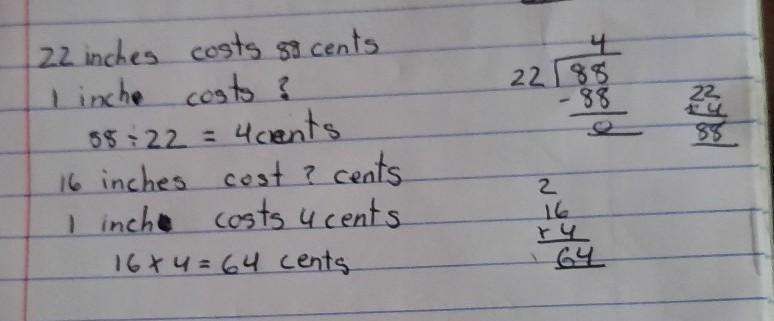 22 inches costs 88 cents
1 inch costs ?
88 ÷ 22 = 4 cents
16 inches cost ? cents
1 inch costs 4 cents
16 × 4 = 64 cents
4
22 88
- 88
0
22
× 4
88
2
16
× 4
64